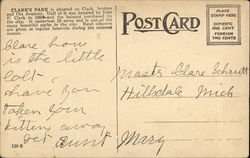 CLARK'S PARK is situated on Clark, Scotten
and Dix Avenues. Half of it was donated by John
P. Clark in 1890 and the balance purchased by
the city. It comprises 28 acres and is one of the
many beautiful parks in the city. Band concerts
are given at regular intervals during the summer
season.
POST CARD
PLACE
STAMP
HERE
DOMESTIC
ONE CENT
FOREIGN
TWO CENTS
Clare how
is the little
colt
have you
taken your
kittens away
yet aunt
Mary
Mast Clare Schautt
Hillsdale Mich